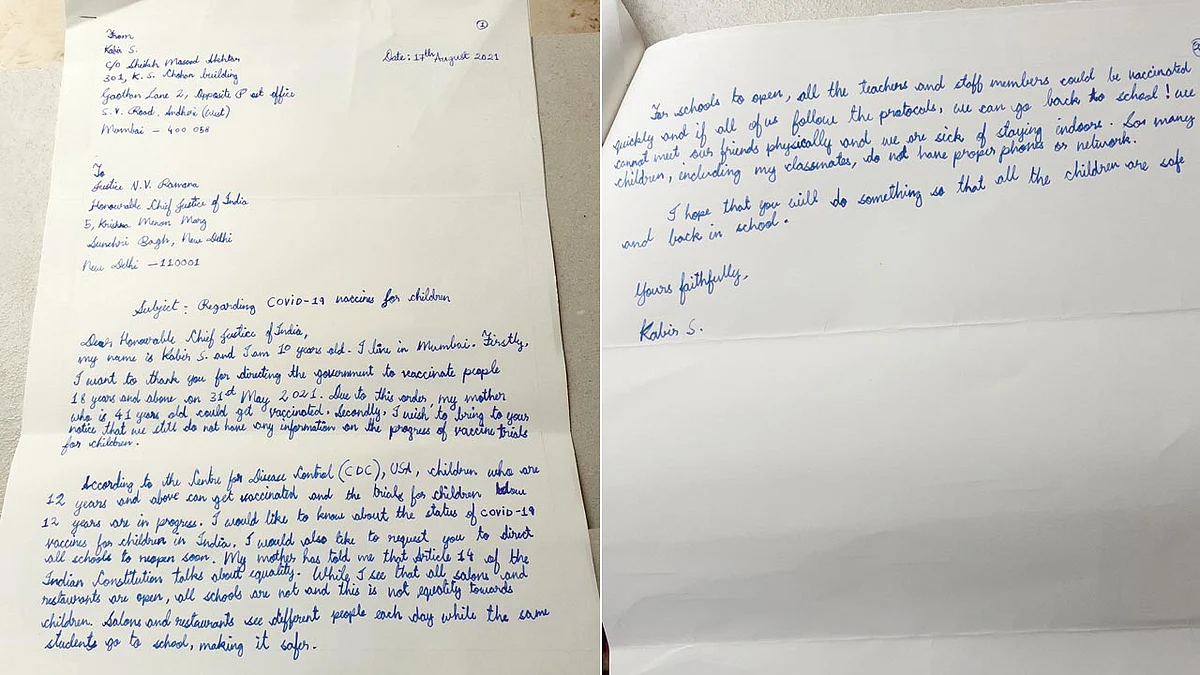 ①
From
Kabir S.
Date: 17th August 2021
C/o Sheikh Masood Akhtar
301, K. S. Chohan building
Gaothan Lane 2, Opposite Post office
S.V. Road, Andheri (West)
Mumbai - 400 058
To
Justice N.V. Ramana
Honourable Chief Justice of India
5, Krishna Menon Marg
Sunehri Bagh, New Delhi
New Delhi - 110001
Subject: Regarding COVID-19 vaccines for children
Dear Honourable Chief Justice of India,
my name is Kabir S. and I am 10 years old. I live in Mumbai. Firstly,
I want to thank you for directing the government to vaccinate people
18 years and above on 31st May 2021. Due to this order, my mother
who is 41 years old could get vaccinated. Secondly, I wish to bring to your
notice that we still do not have any information on the progress of vaccine trials
for children.
According to the Centre for Disease Control (CDC), USA, children who are
12 years and above can get vaccinated and the trials for children below
12 years are in progress. I would like to know about the status of COVID-19
vaccines for children in India. I would also like to request you to direct
all schools to reopen soon. My mother has told me that Article 14 of the
Indian Constitution talks about equality. While I see that all salons and
restaurants are open, all schools are not and this is not equality towards
children. Salons and restaurants see different people each day while the same
students go to school, making it safer.
For schools to open, all the teachers and staff members could be vaccinated
quickly and if all of us follow the protocols, we can go back to school! we
cannot meet our friends physically and we are sick of staying indoors. So many
children, including my classmates, do not have proper phones or network.
I hope that you will do something so that all the children are safe
and back in school.
Yours faithfully,
Kabir S.